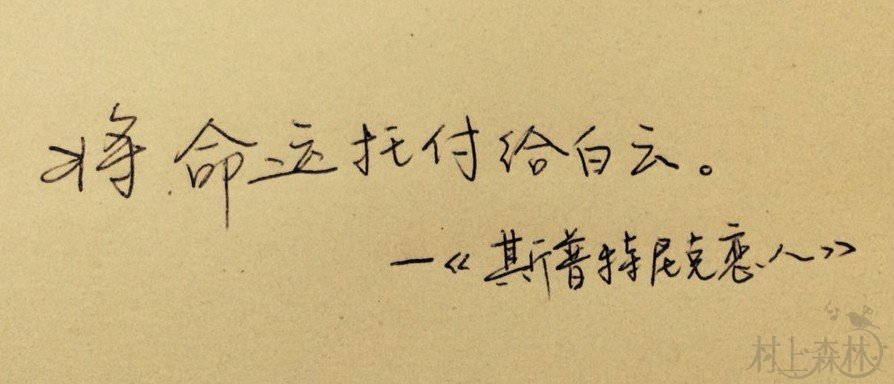 将命运托付给白云。
—《斯普特尼克恋人》
村上森林